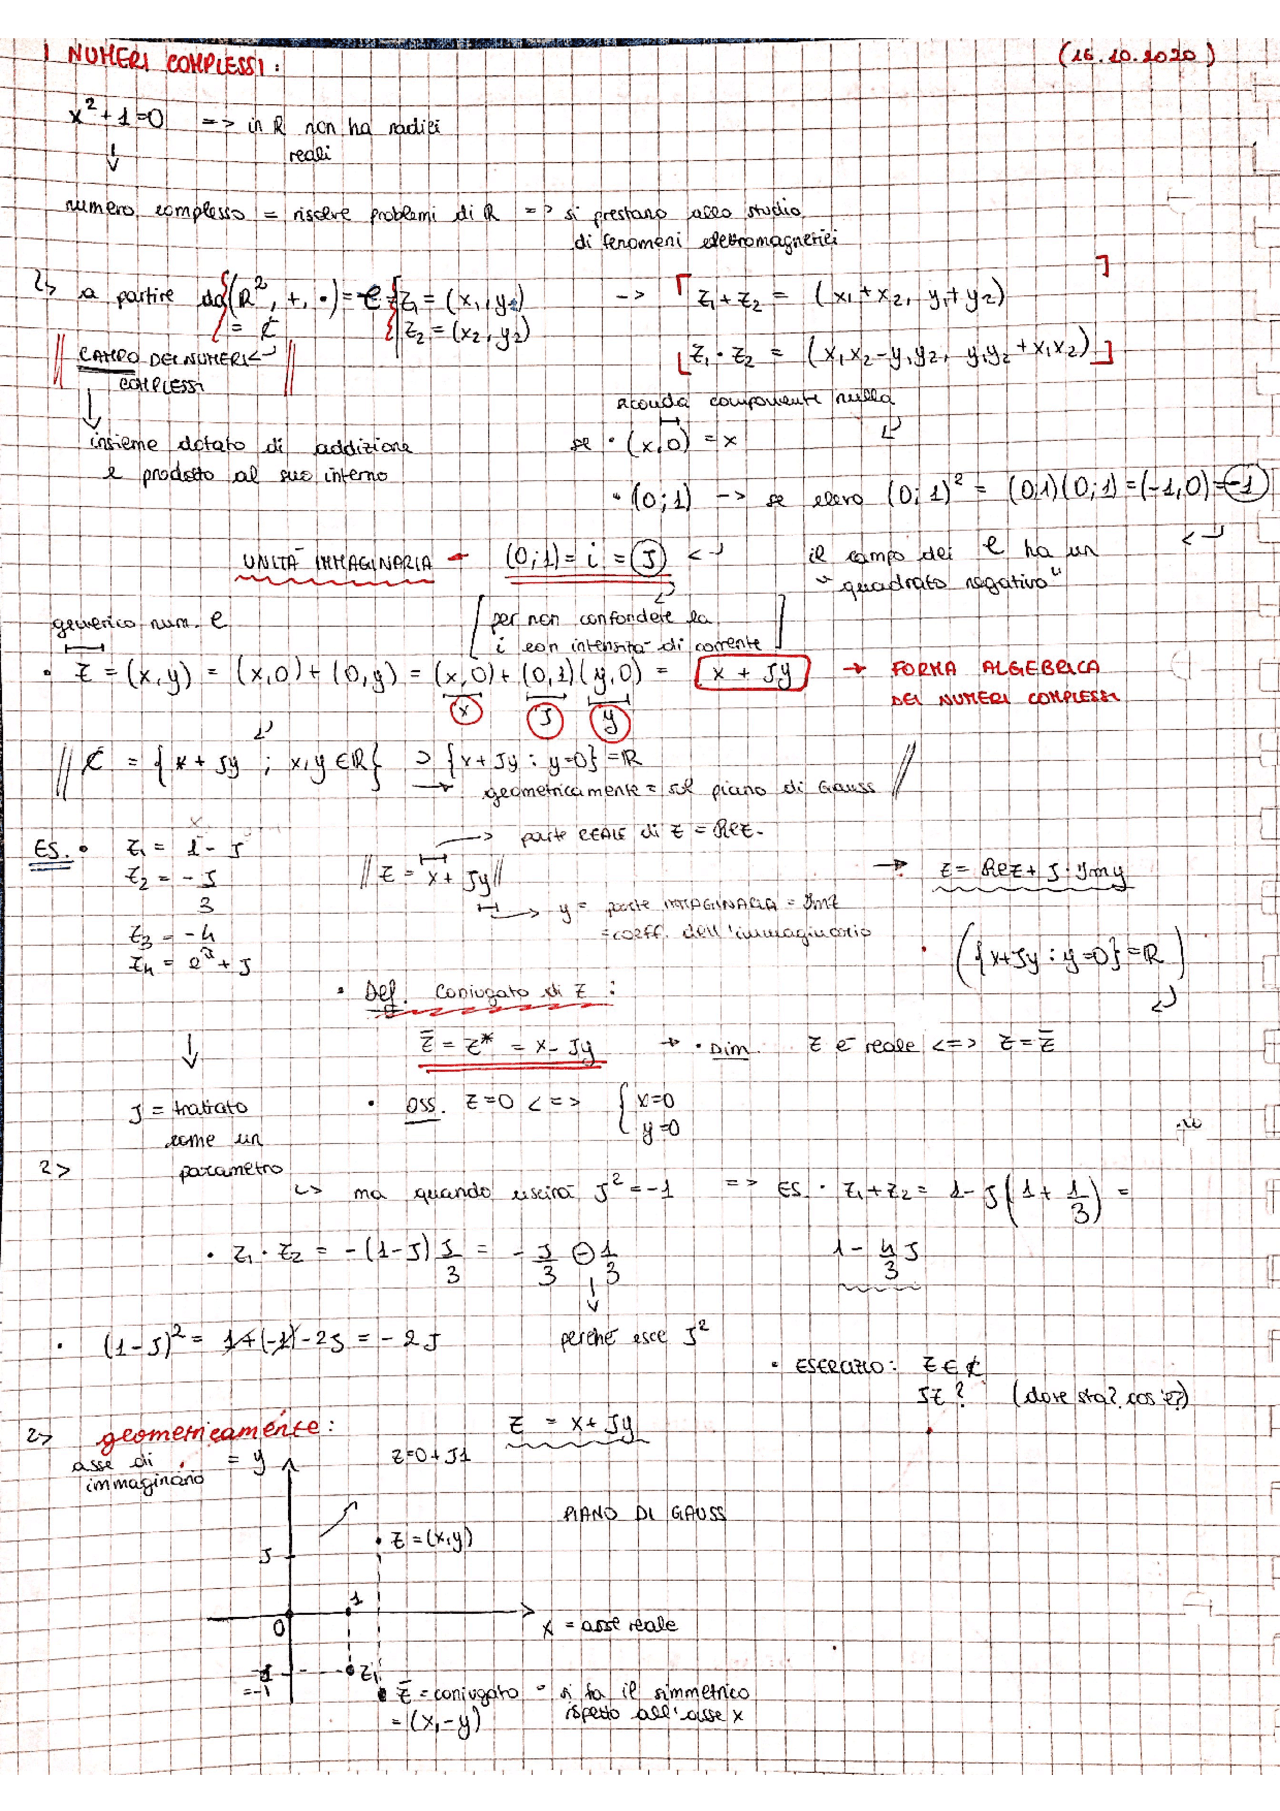 I NUMERI COMPLESSI: (16.10.2020)
x²+1=0 => in R non ha radici
reali
↓
numero complesso = risolve problemi di R => si prestano allo studio
di fenomeni elettromagnetici
↳ a partire da (R², +, ·) = C z₁ = (x₁, y₁) -> [z₁+z₂ = (x₁+x₂, y₁+y₂)]
= ₵ z₂ = (x₂, y₂)
CAMPO DEI NUMERI [z₁·z₂ = (x₁x₂-y₁y₂, y₁y₂+x₁x₂)]
COMPLESSI
↓ seconda componente nulla
insieme dotato di addizione se • (x,0) = x
e prodotto al suo interno
• (0;1) -> se elevo (0;1)² = (0,1)(0;1)=(-1,0)=-1
UNITÀ IMMAGINARIA ← (0;1) = i = J il campo dei C ha un
"quadrato negativo"
generico num. C [per non confondere la
i con intensità di corrente]
• z = (x,y) = (x,0)+(0,y) = (x,0)+(0,1)(y,0) = x + Jy → FORMA ALGEBRICA
DEI NUMERI COMPLESSI
x J y
// ₵ = {x+Jy ; x,y ∈ R} ⊃ {x+Jy : y=0} = R
→ geometricamente = sul piano di Gauss //
→ parte REALE di z = Rez.
ES. • z₁ = 1-J
z₂ = -J
3
z₃ = -4
z₄ = e³+J
// z = x+Jy // → z = Rez + J·Imy
→ y = parte IMMAGINARIA = Imz
= coeff. dell'immaginario
• ({x+Jy : y=0} = R)
• Def. coniugato di z :
z̄ = z* = x-Jy → • Dim. z è reale <=> z = z̄
↓
J = trattato • oss. z=0 <=> { x=0
come un y=0
parametro
↳ ma quando uscirà J² = -1 => ES. • z₁+z₂ = 1-J(1+1/3) =
1 - 4/3 J
• z₁·z₂ = -(1-J) J/3 = -J/3 - 1/3
↓
perché esce J²
• (1-J)² = 1+(-1)-2J = -2J
• ESERCIZIO: z ∈ ₵
Jz? (dove sta? cos'è?)
↳ geometricamente: z = x+Jy
asse di = y z=0+J1
immaginario
PIANO DI GAUSS
• z = (x,y)
J
1
0 x = asse reale
z₁
=-1 z̄ = coniugato - si fa il simmetrico
= (x,-y) rispetto all'asse x